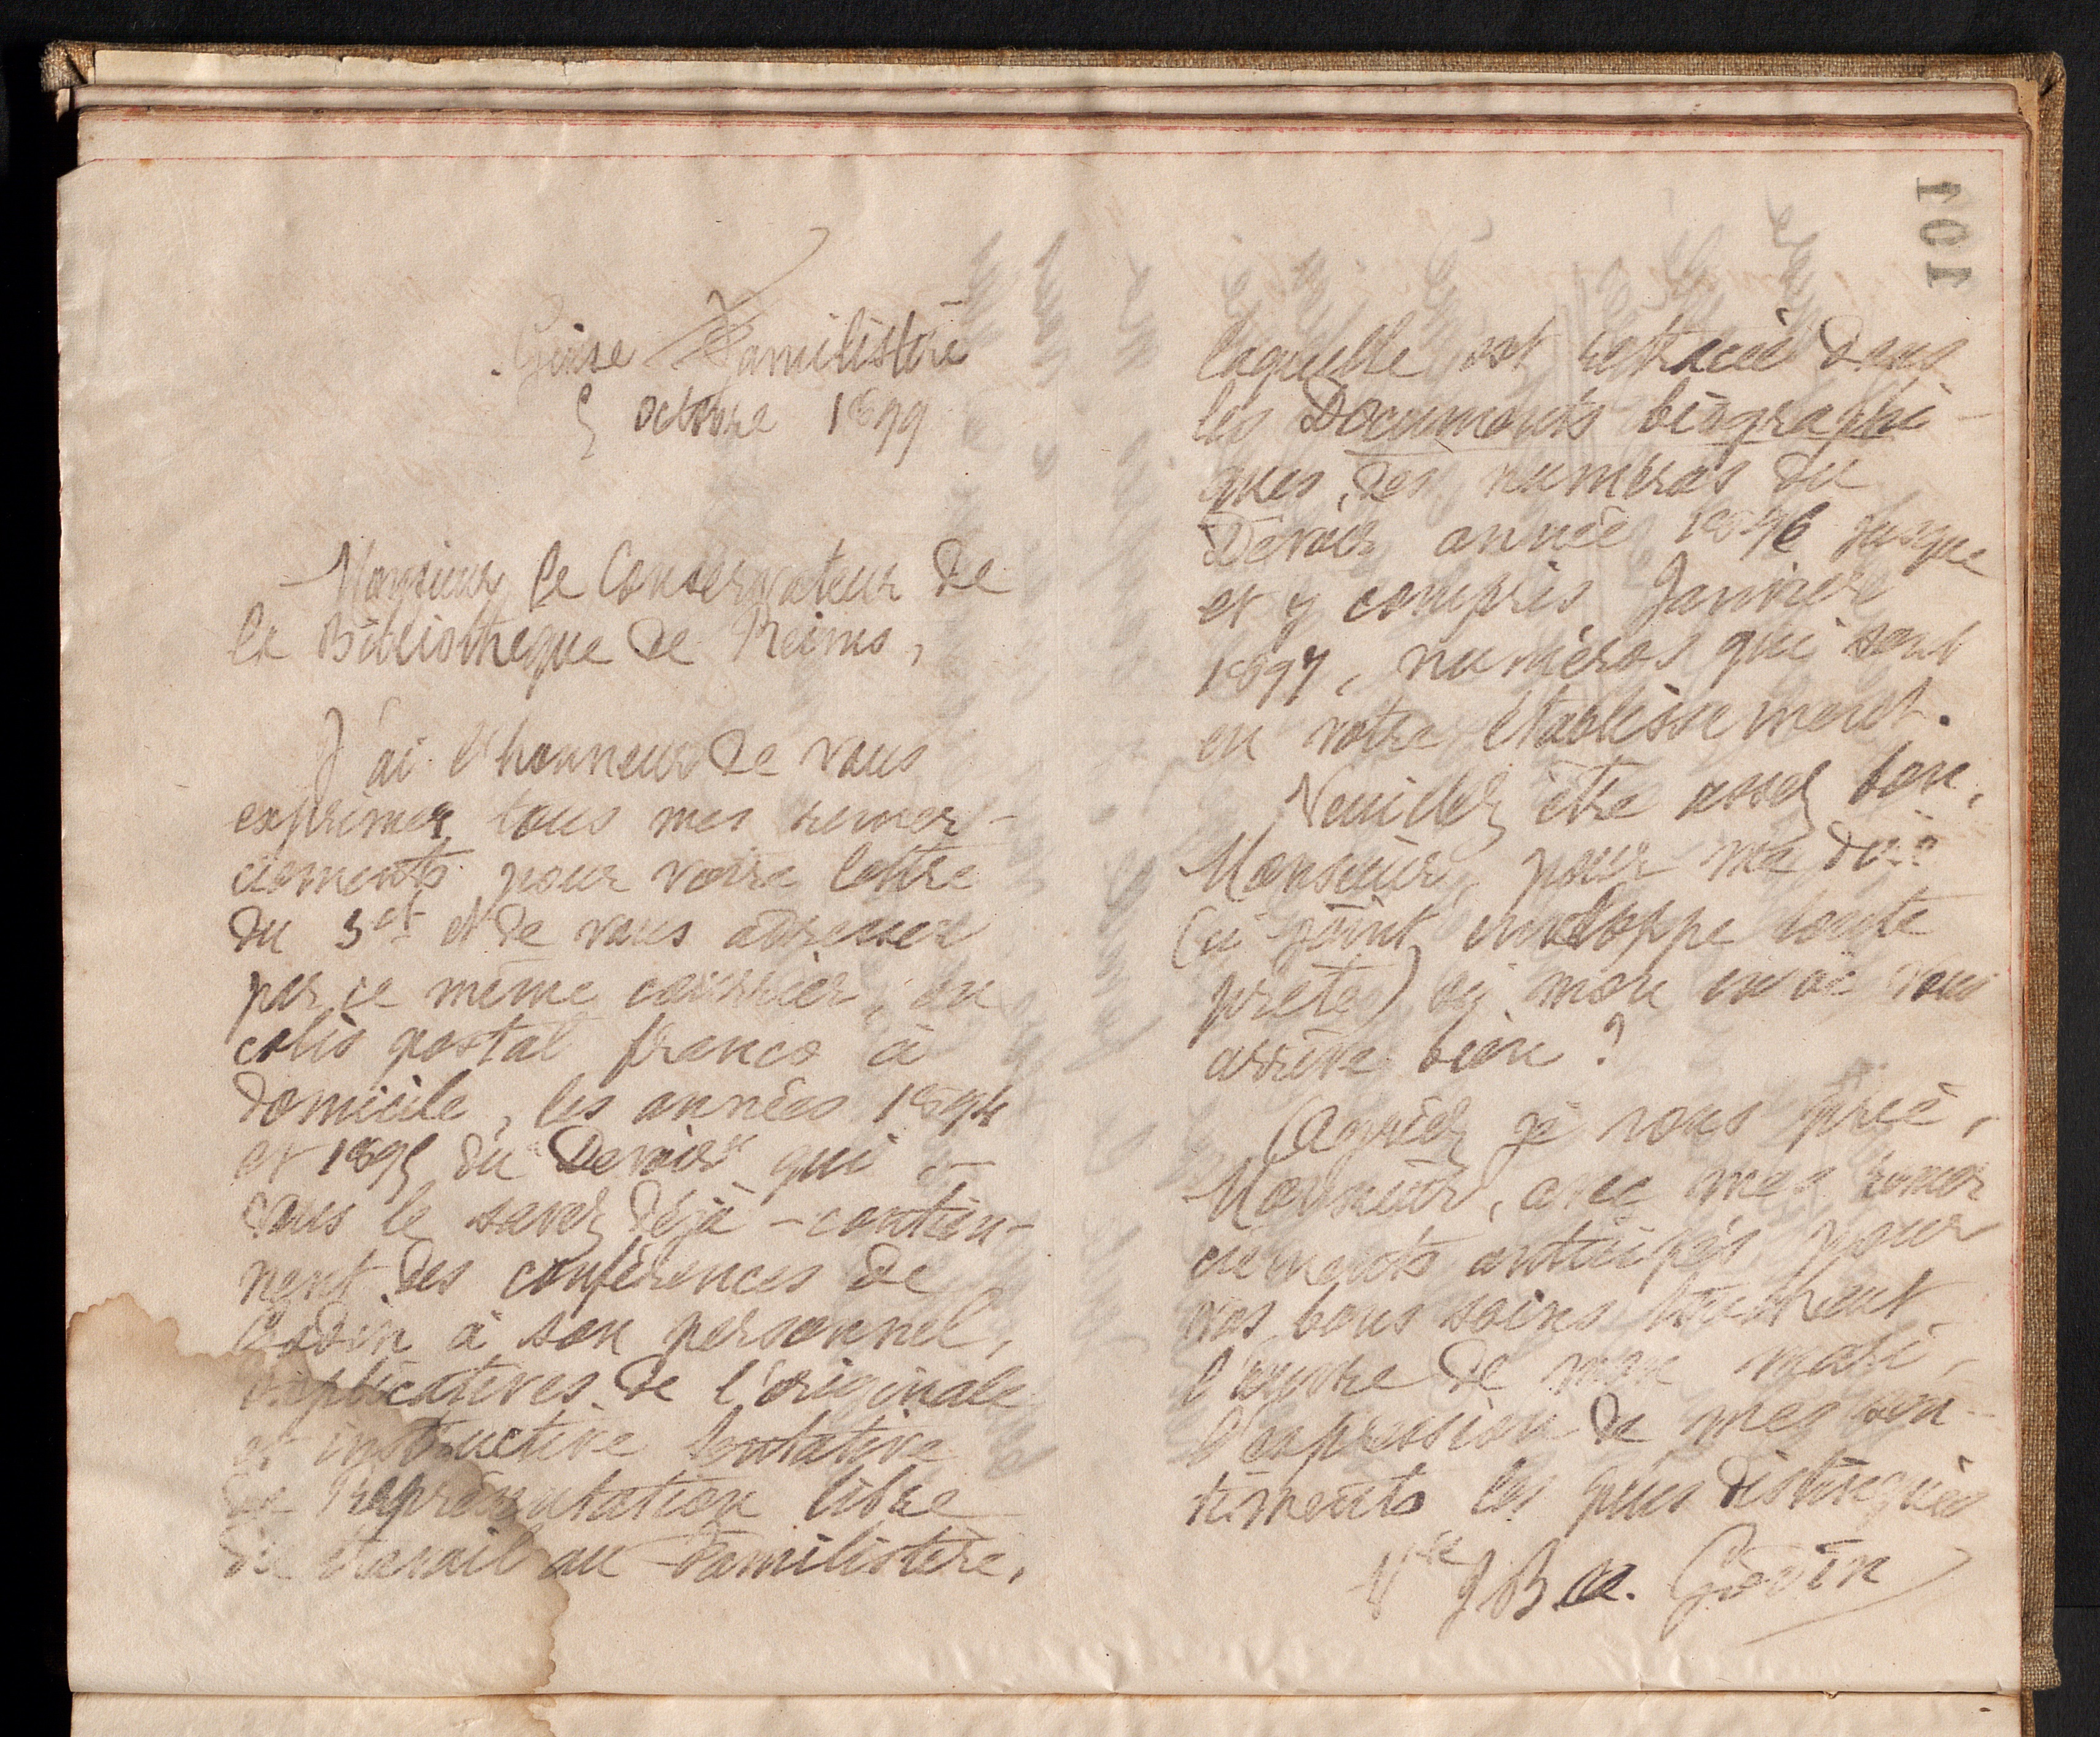 101
Guise Familistère
5 octobre 1899
Monsieur le Conservateur de
la Bibliothèque de Reims,
J'ai l'honneur de vous
exprimer tous mes remer-
ciements pour votre lettre
du 3 et et de vous adresser
par ce même courrier, en
colis postal franco à
domicile, les années 1894
et 1895 du "Devoir" qui -
vous le savez déjà - contien-
nent des conférences de
Godin à son personnel,
explicatives de l'originale
et instructive tentative
de Représentation libre
du travail au Familistère,
laquelle est retracée dans
les Documents biographi-
ques, des numéros du
Devoir année 1896 jusque
et y compris Janvier
1897, numéros qui sont
en votre établissement.
Veuillez être assez bon,
Monsieur, pour me dire
(ci joint enveloppe toute
prête) si mon envoi vous
arrive bien ?
Agréez je vous prie,
Monsieur, avec mes remer
ciements anticipés pour
vos bons soins touchant
l'œuvre de mon mari,
l'expression de mes sen-
timents les plus distingués
Vve J Bte a. Godin